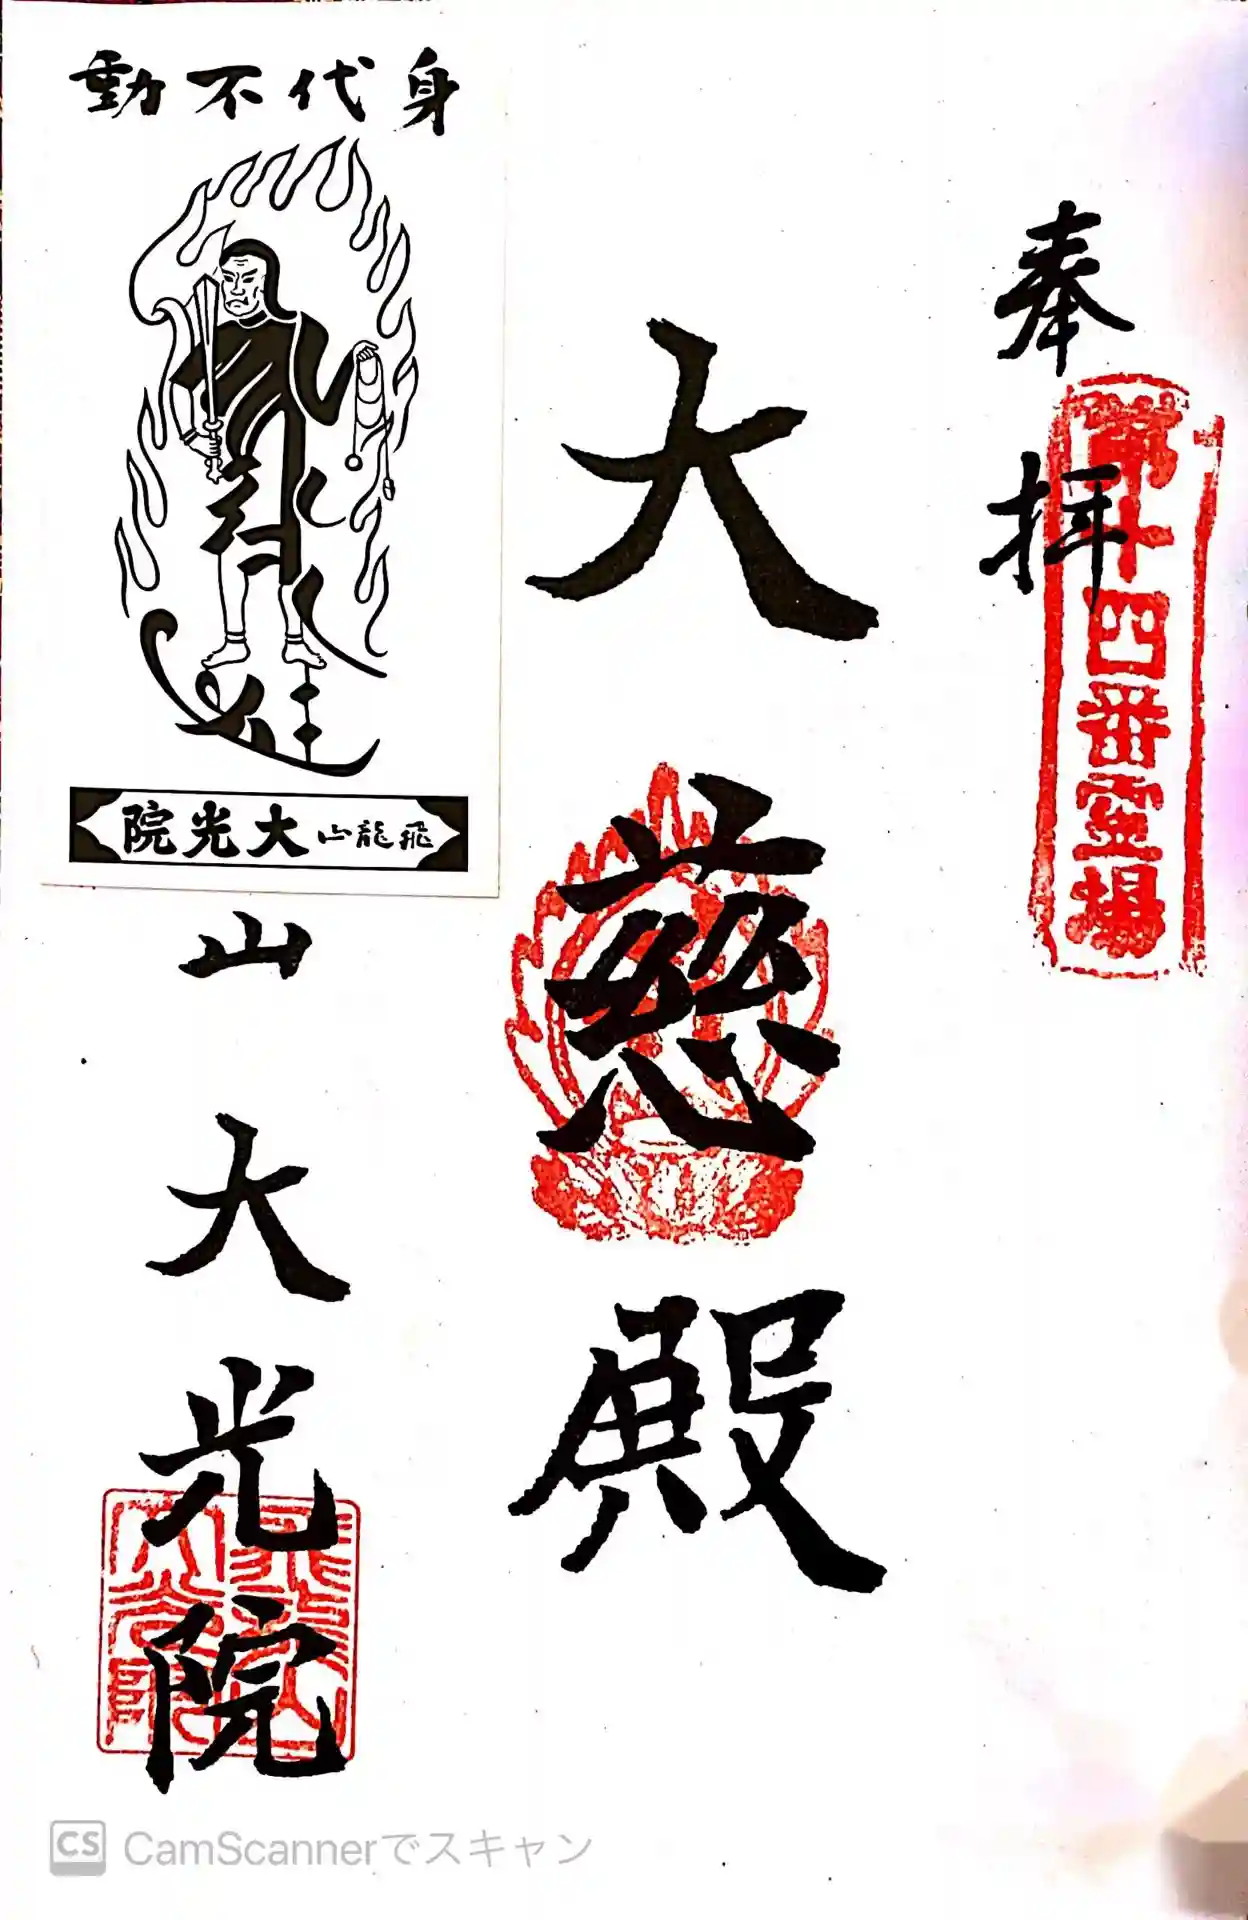 奉拝
第十四番霊場
大慈殿
身代不動
飛龍山大光院
山大光院
CS CamScannerでスキャン